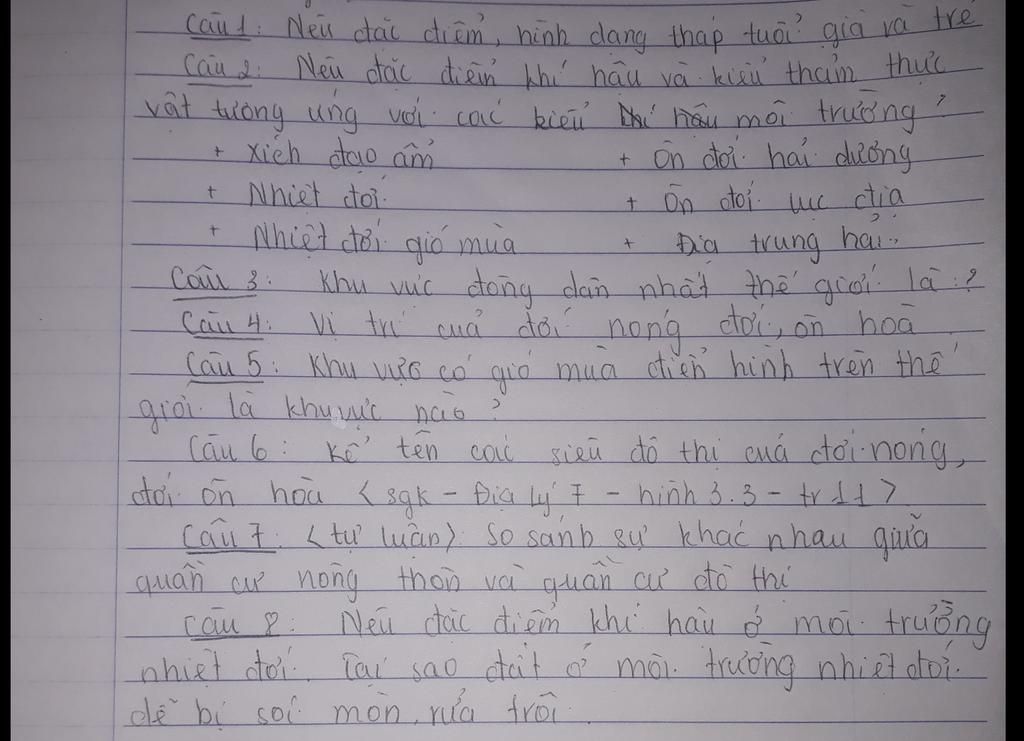 Câu 1: Nêu đặc điểm, hình dạng tháp tuổi già và trẻ
Câu 2: Nêu đặc điểm khí hậu và kiểu thảm thực
vật tương ứng với các kiểu khí hậu môi trường?
+ xích đạo ẩm + Ôn đới hải dương
+ Nhiệt đới + Ôn đới lục địa
+ Nhiệt đới gió mùa + Địa trung hải..
Câu 3: Khu vực đông dân nhất thế giới là:?
Câu 4: Vị trí của đới nóng đới, ôn hoà
Câu 5: Khu vực có gió mùa điển hình trên thế
giới là khu vực nào?
Câu 6: Kể tên các siêu đô thị của đới nóng,
đới ôn hoà <sgk - Địa lý 7 - hình 3.3 - tr 11>
Câu 7: <tự luận> So sánh sự khác nhau giữa
quần cư nông thôn và quần cư đô thị
Câu 8: Nêu đặc điểm khí hậu ở môi trường
nhiệt đới. Tại sao đất ở môi trường nhiệt đới
dễ bị sói mòn, rửa trôi.